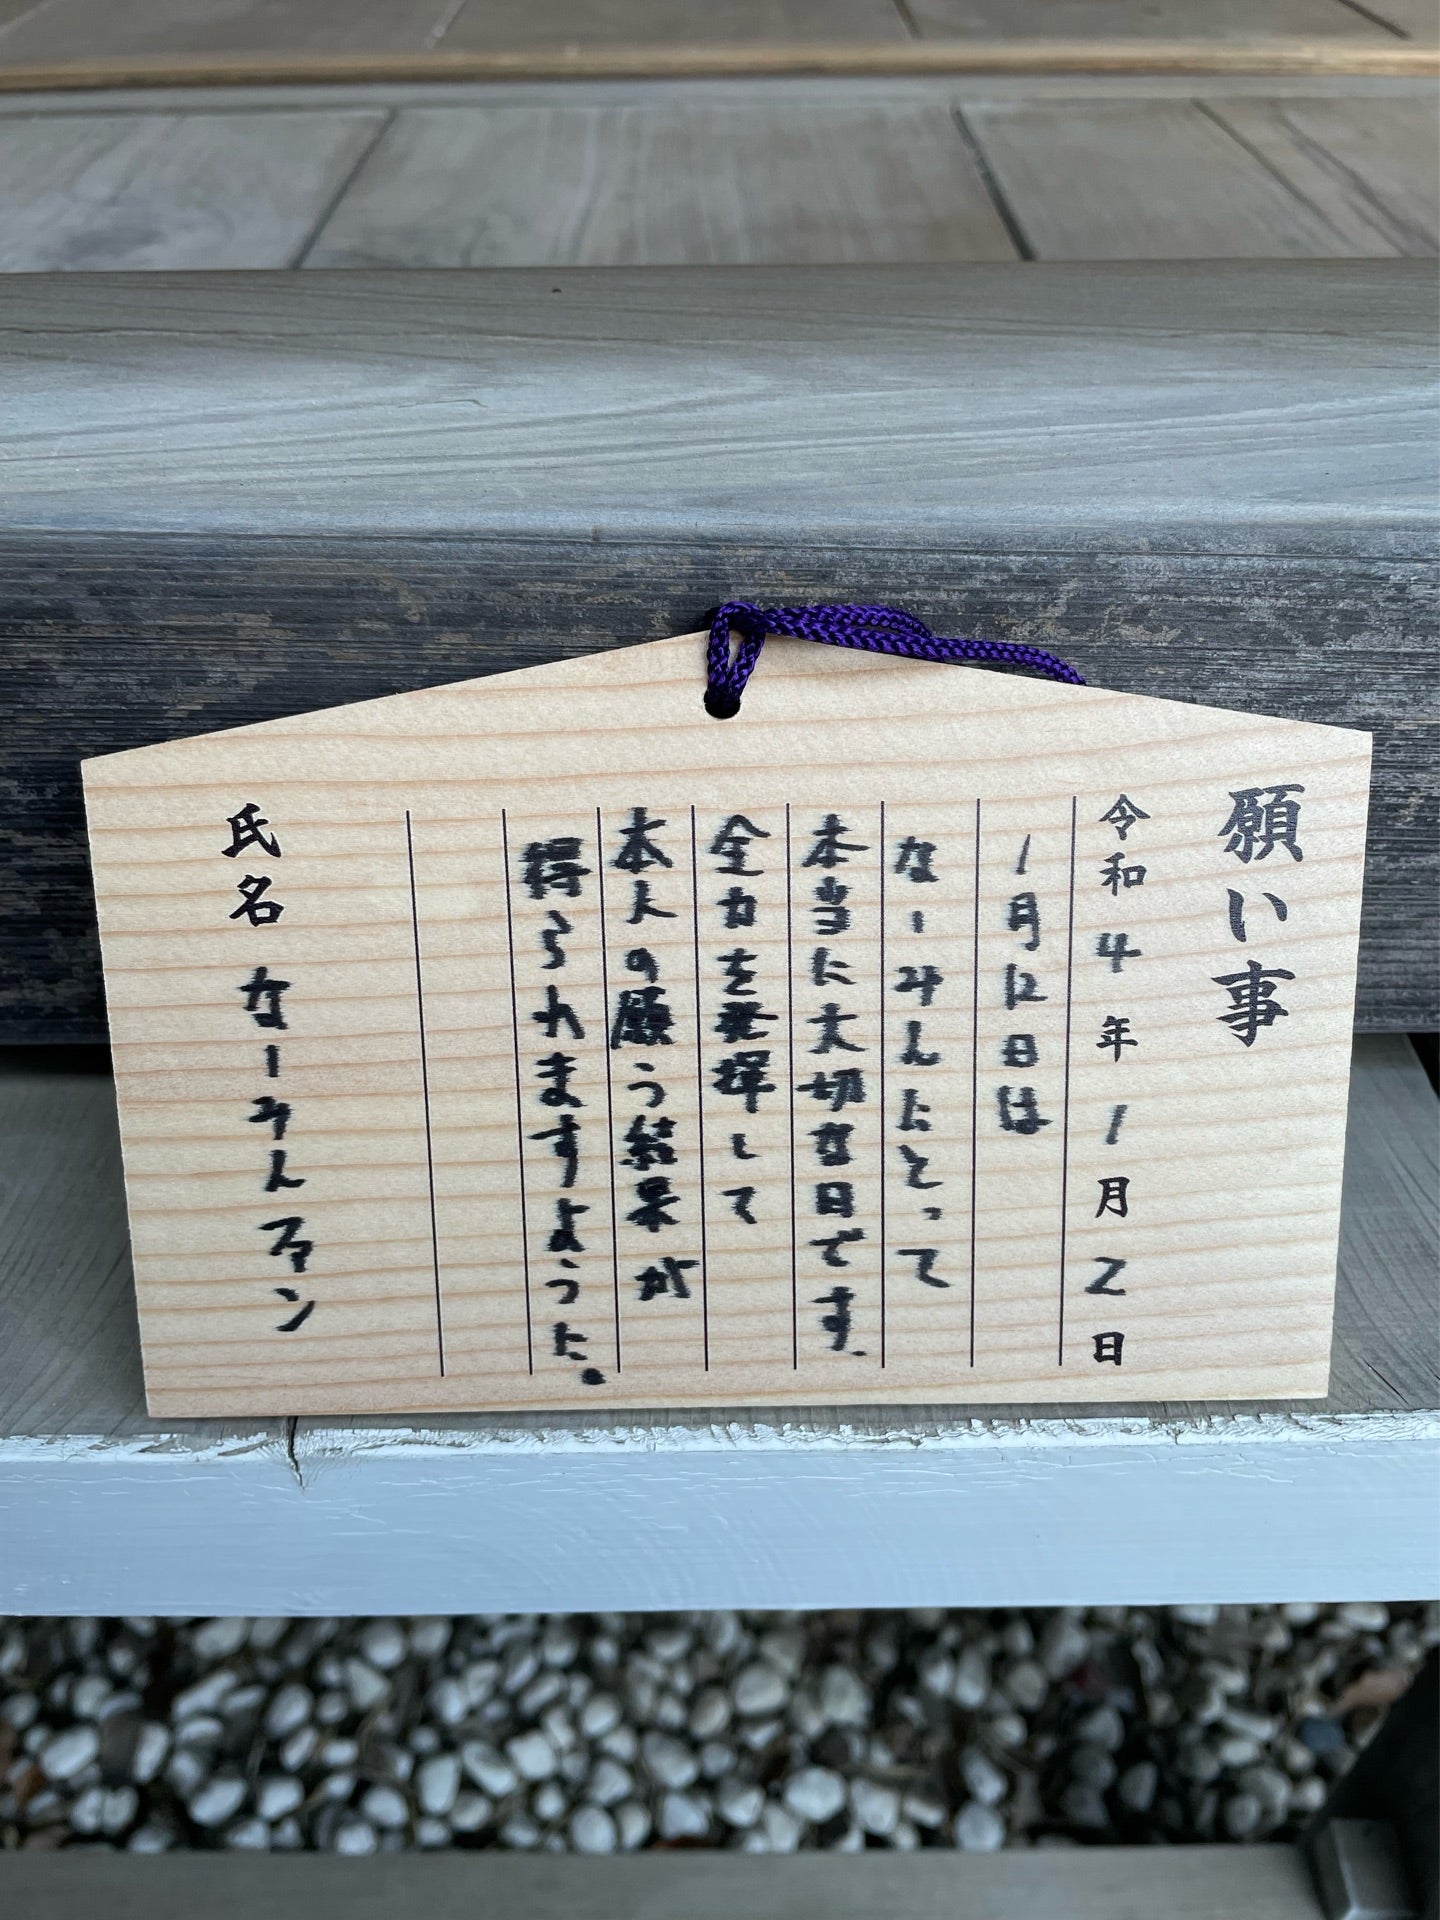 願い事
令和4年1月2日
1月12日は
なーみんにとって
本当に大切な日です.
全力を発揮して
本人の願う結果が
得られますように。
氏名 なーみんファン